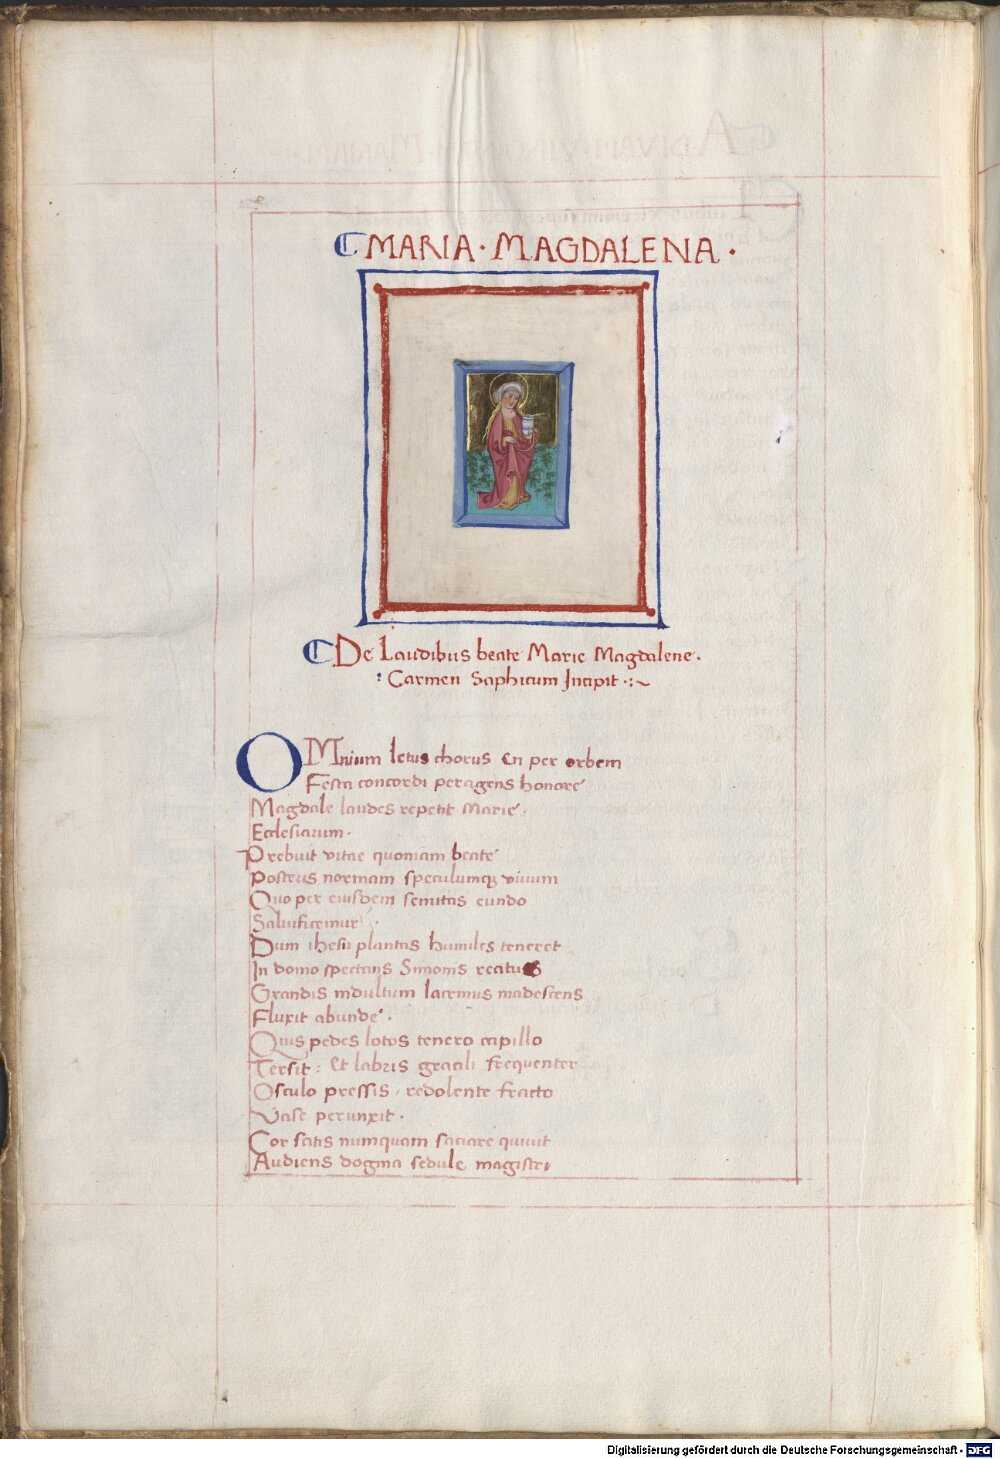 MARIA · MAGDALENA ·
De Laudibus beate Marie Magdalene.
: Carmen Saphicum Incipit .:~
OMnium letus chorus en per orbem
Festa concordi peragens honore
Magdale laudes repetit Marie.
Ecclesiarum.
Prebuit vitae quoniam beate
Posteris normam speculumqꝫ viuum
Quo per eiusdem semitas eundo
Saluificemur.
Dum ihesu plantas humiles teneret
In domo spectans Simonis reatus
Grandis indultum lacrimis madescens
Fluxit abunde.
Quis pedes lotos tenero capillo
Tersit: Et labris gracili frequenter
Osculo pressis, redolente fracto
Vase perunxit.
Cor satis numquam saciare quiuit
Audiens dogma sedule magistri
Digitalisierung gefördert durch die Deutsche Forschungsgemeinschaft - DFG